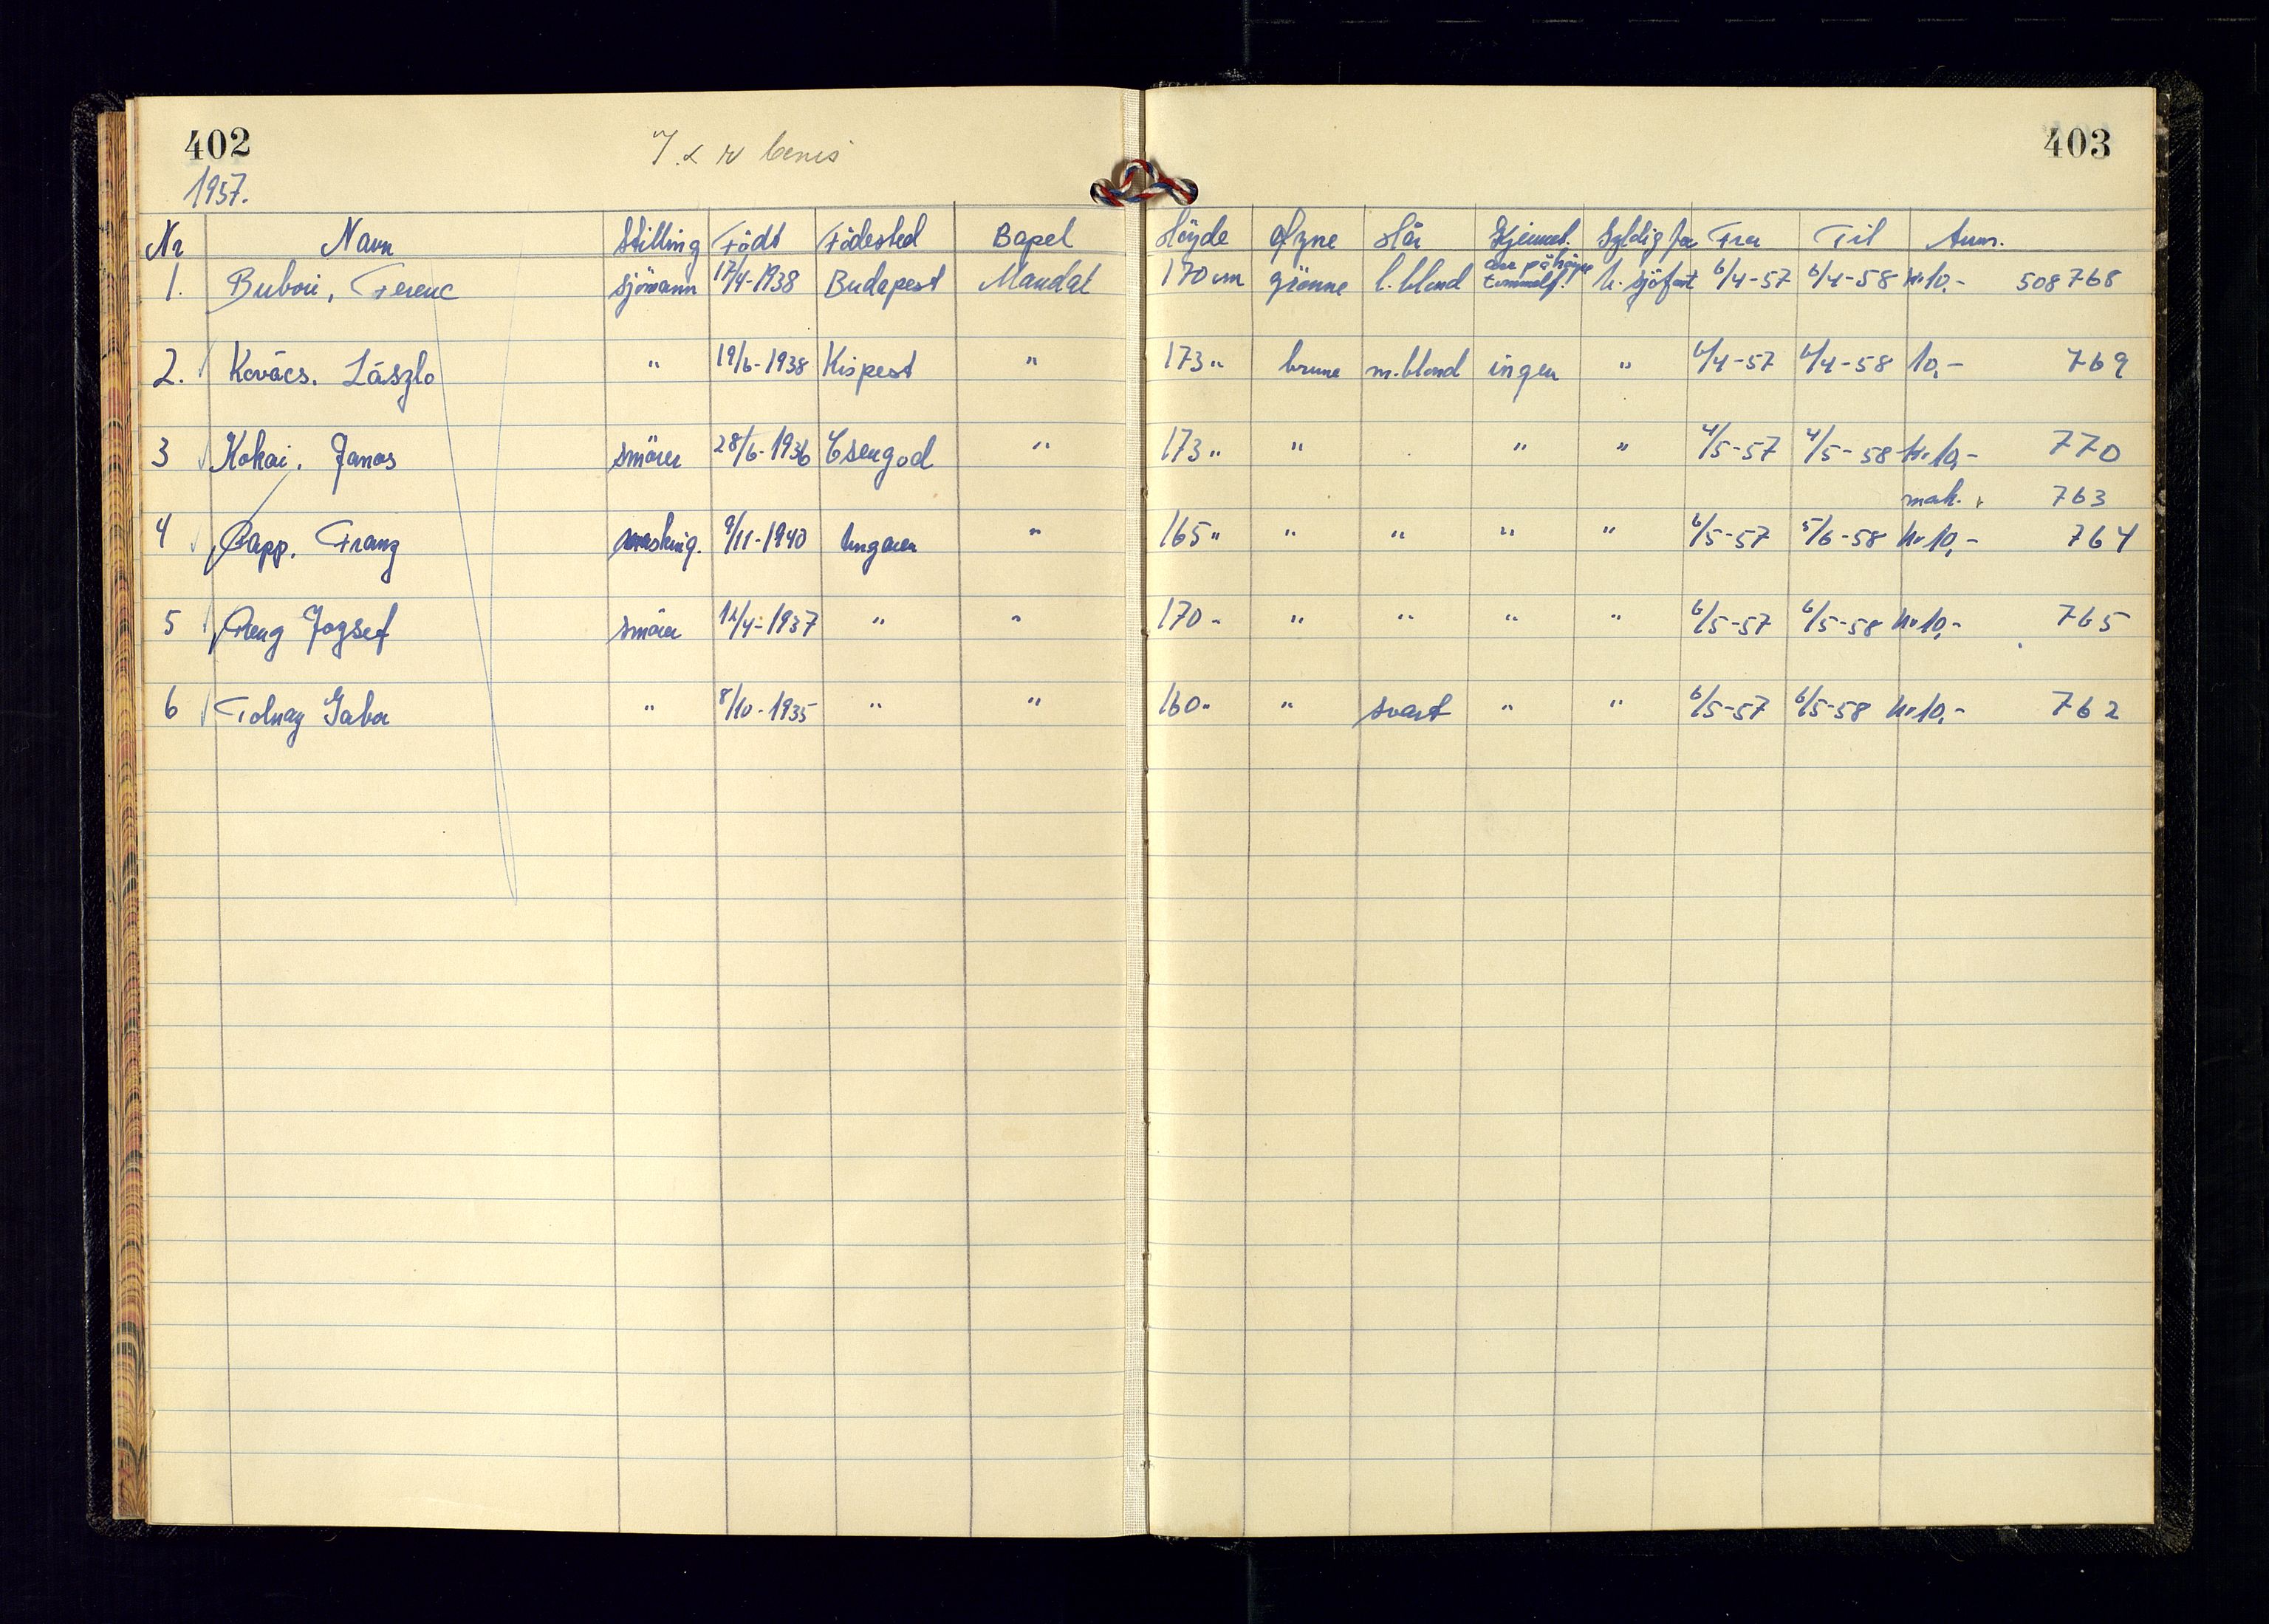 402 403
1957.
Nr Navn Stilling Födt Födested Bopel Höyde Øyne Hår Kjennet. Gyldig for Fra Til Anm.
1. Buboi, Ferenc sjömann 17/4-1938 Budapest Mandal 170 cm grönne l. blond arr på höyre tommelf. u. sjöfart 6/4-57 6/4-58 kr 10,- 508768
2. Kovács. László " 19/6-1938 Kispest " 173 " brune m. blond ingen " 6/4-57 6/4-58 10,- 769
3 Kokai. Janos smörer 28/6-1936 Csengod " 173 " " " " 4/5-57 4/5-58 kr 10,- 770
mak. 763
4 Papp. Franz masking. 9/11-1940 Ungarn " 165 " " " " " 6/5-57 5/6-58 kr 10,- 764
5 Reng Jozsef smörer 12/4-1937 " " 170 - " " " " 6/5-57 6/5-58 kr 10,- 765
6 Tolnay Gabor " 8/10-1935 " " 160 " " svart " " 6/5-57 6/5-58 kr 10,- 762